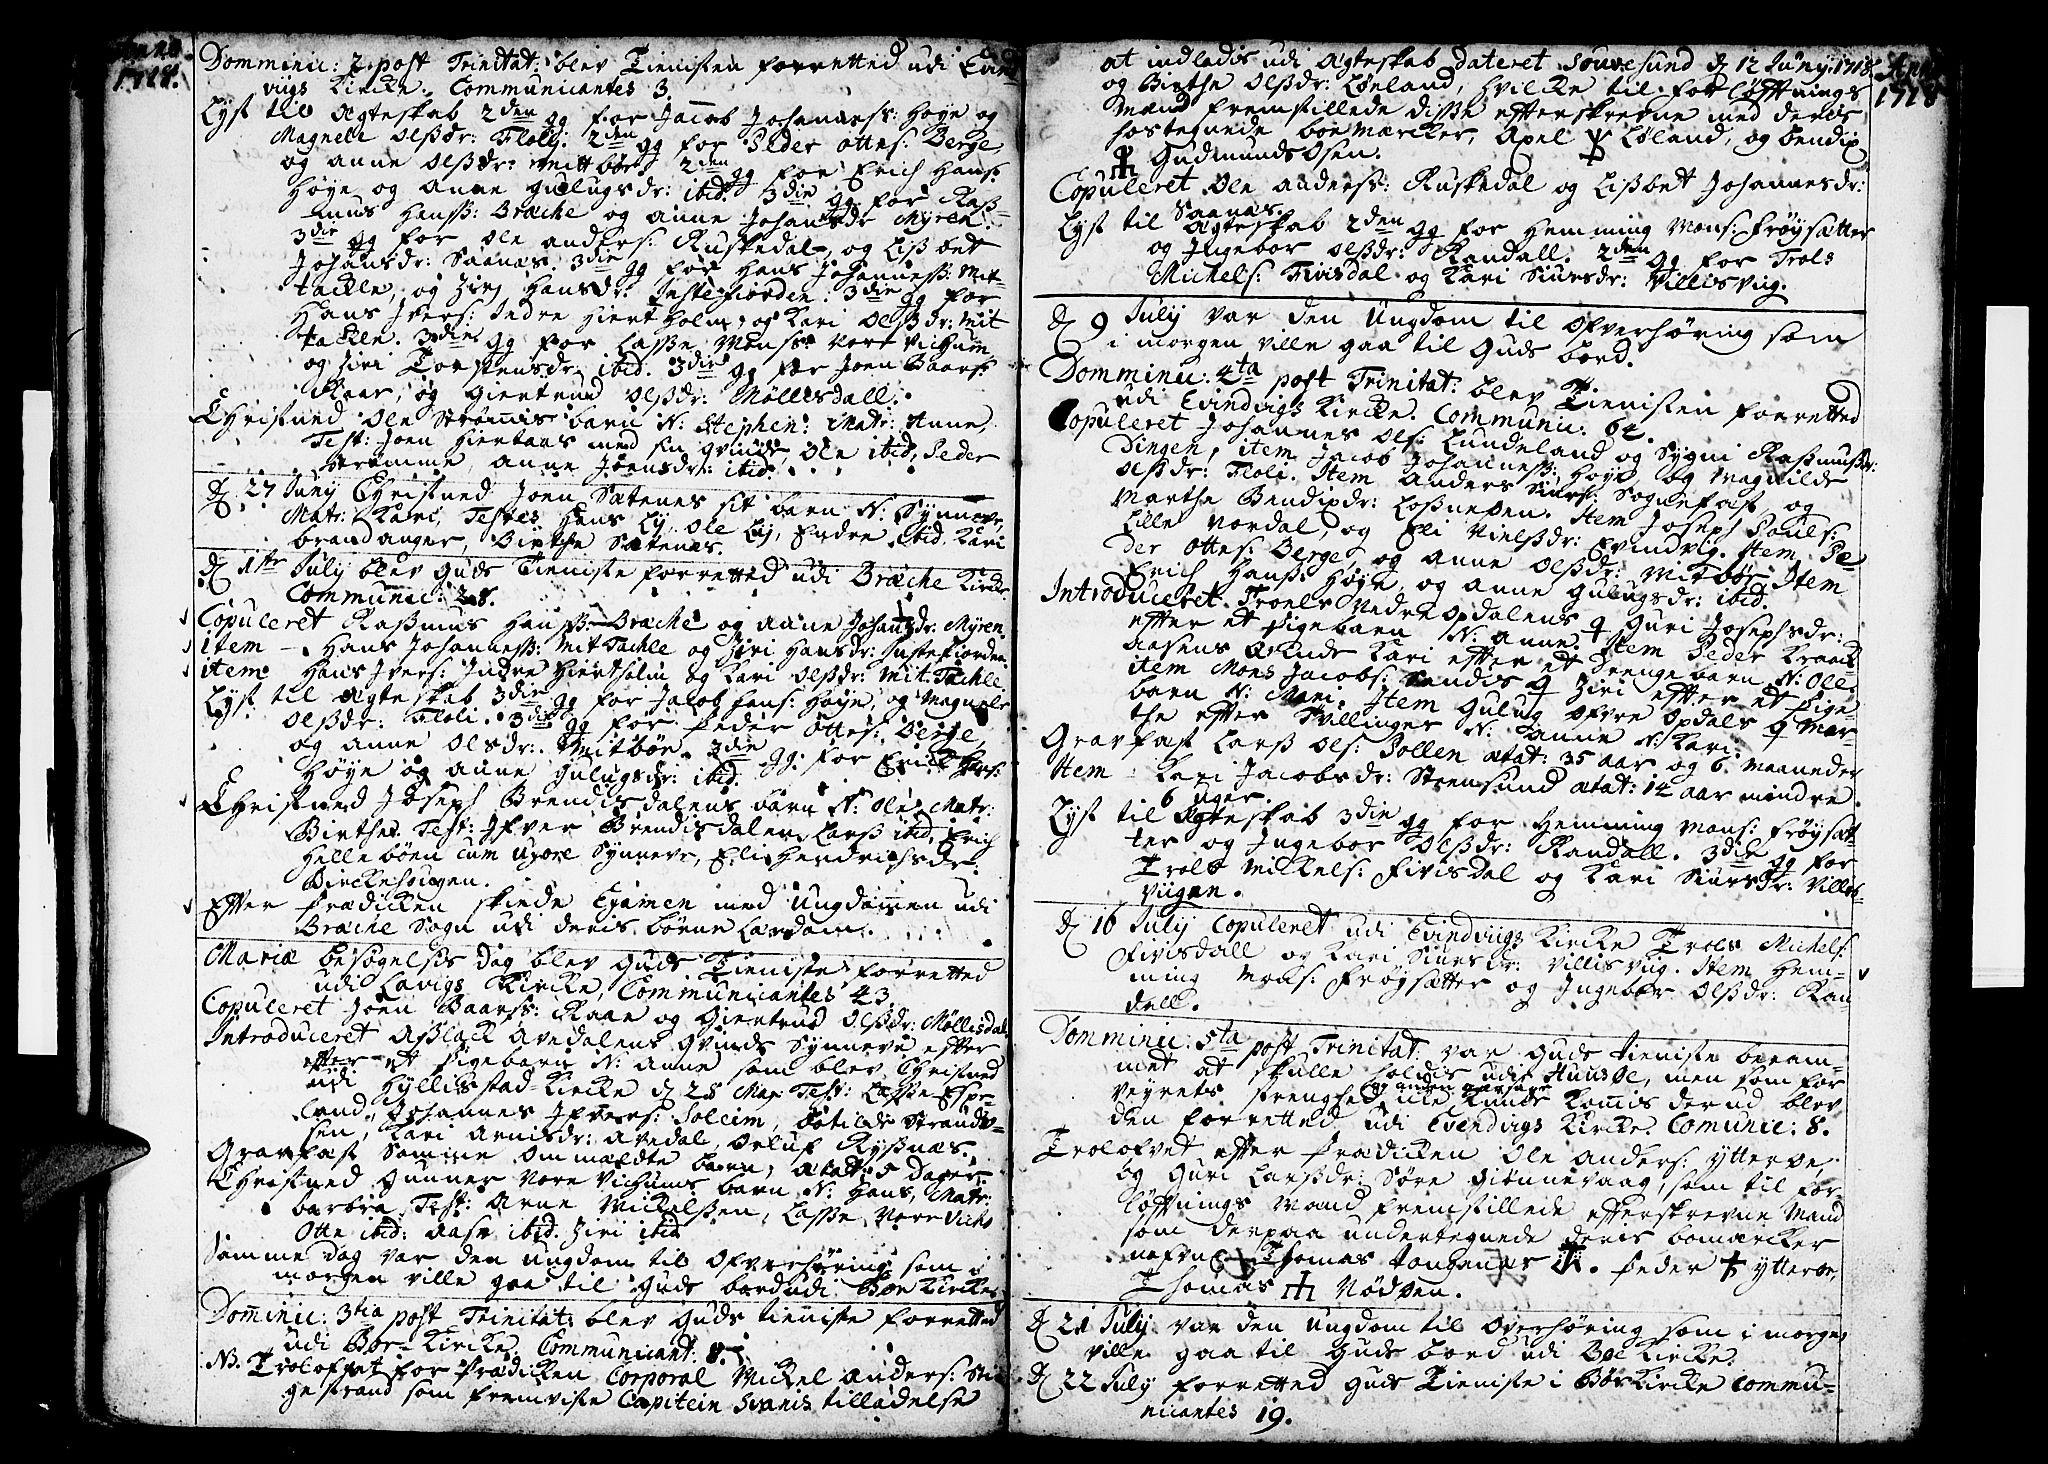 Anno
1718.
Domminic: 2. post Trinitat: blev Tienisten forretted udi Evind
viigs Kircke. Communicantes 3
Lyst til Ægteskab 2den gg for Jacob Johanness: Høye og
Magnele Olsdr: Floli. 2den gg for Peder Ottes: Berge
og Anne Olsdr: Mittbøe. 2den gg for Erich Hans:
Høye og Anne Gulugsdr: ibid. 3die gg for Raß-
mus Hanss: Bræche og Anne Johansdr Myren.
3die gg for Ole Anders: Ruskedal, og Lisbet
Johansdr: Saanæs 3die gg for Hans Johanness: Mit-
tackle, og Ziri Hansdr: Instefiorden: 3die gg for
Hans Ivers: Indre Hiertholm, og Kari Olsdr: Mit
tackle. 3die gg for Lasse Monss: Nore Vichum
og Ziri Torstensdr: ibid. 3die gg for Joen Baars:
Raar, og Giertrud Olsdr: Møllisdall.
Christned Ole Strømmis barn N: Stephen: Matr: Anne,
Test: Joen Hiertaas med sin qvinde, Ole ibid, Peder
Strømme, Anne Joensdr: ibid.
D 27 Juny Christned Joen Sætenes sit barn N: Synneve,
Matr: Kari, Testes Hans Ly, Ole Ly, Endre ibid. Kari
brandanger, Birthe Sætenes.
D 1ste July blev Guds Tieniste forretted udi Bræche Kircke
Communic: 28.
Copuleret Rasmus Hanss: Bræche og Anne Johansdr: Myren.
item - Hans Johanness: Mit Tackle og Ziri Hansdr: Instefiorden.
item Hans Ivers: Indre Hiertholm og Kari Olsdr: Mit Tachle
Lyst til Ægteskab 3die gg for Jacob Hans: Høye, og Magnele
Olsdr: Floli. 3die gg for Peder Ottes: Berge
og Anne Olsdr: Mitbøe. 3die gg: for Erich Hans:
Høye og Anne Gulugsdr: ibid.
Christned Joseph Brendisdalens barn N: Ole, Matr:
Birthe. Test: Ifver Brendisdalen, Lars ibid, Erich
Hellebøen cum uxore Synneve, Eli Hendrichsdr:
Birckehougen.
Efter Prædicken skiede Examen med Ungdommen udi
Bræche Sogn udi deris børne Lærdom.
Mariæ besøgelsis Dag blev Guds Tieniste forretted
udi Lavigs Kircke, Communicantes 43.
Copuleret Joen Baarss: Raar og Giertrud Olsdr: Møllisdal
Introduceret Aslack Avedalens Qvinde Synneve efter
et Pigebarn N: Anne som blev Christned
udi Hyllistad Kircke d 28 May Test: Lasse Espe-
land, Johannes Ifvers: Soleim, Botilde Strands-
sen, Kari Arnisdr: Avedal, Oeluf Rysnæs.
Gravfæst Samme ommældte barn, ætat: 5 dager.
Christned Gunner Nore Vichums barn N: Hans, Matr:
barbra, Test: Arne Mickelsen, Lasse Nore Vich
Otte ibid: Aase ibid. Ziri ibid
Samme Dag var den Ungdom til Ofverhøring som i
morgen ville gaa til Guds bord udi Bøe Kircke
Dominic: 3tia post Trinitat: blev Guds tieniste forretted
udi Bøe Kircke. Communicant: 8.
NB. Trolofvet for Prædicken Corporal Mickel Anders:
gestrand som fremviste Capitein Svanis tilladelse
at indladis udi Ægteskab dateret Souvesund d 12 Juny 1718
og Birthe Olsdr: Lønland, hvilcke til forløftnings
Mænd fremstillede disse efterskrevne med deris
hostegnede boemærcker, Axel Løland, og bendix
Gudmunds Osen.
Anno
1718
Copuleret Ole Anderss: Ruskedal og Lisbet Johannesdr:
Saanæs.
Lyst til Ægteskab 2den gg for Hemming Mons: Frøysætter
og Ingebor Olsdr: Randall. 2den gg for Trols
Michels: Fivisdal og Kari Siursdr: Villisviig.
D 9 July var den Ungdom til Ofverhøring som
i morgen ville gaa til Guds bord.
Domminic: 4ta post Trinitat: blev Tienisten forretted
udi Evindvigs Kircke. Communic: 62.
Copuleret Johannes Ols: Lundeland og Sygni Rasmusdr:
Dingen, item Jacob Johanness: Høye, og Magnilde
Olsdr: Floli. Item Anders Siurs: Sognefæst, og
Marthe Bendixdr: Losneøen. Item Joseph Pouls:
Lille Nordal, og Eli Nielsdr: Evindvig. Item Pe-
der Ottes: Berge, og Anne Olsdr: Mitbøe. Item
Erich Hanss: Høye og Anne Gulugsdr: ibid.
Introduceret Troels Nedre Opdalens q Guri Josephsdr:
efter et Pigebarn N: Anne. Item Peder Kraack
aasens Qvinde Kari efter et Drenge barn N: Ole
item Mons Jacobs: Sandis q Ziri efter et Pige
barn N: Mari. Item Gulug Øfvre Opdals q Mar-
the efter Tvillinger N: Anne N: Kari.
Gravfæst Lars Ols: Pollen ætat: 35 aar og 6. maaneder
Item Kari Jacobsdr: Steensund ætat: 14 aar mindre
6 uger.
Lyst til Ægteskab 3die gg for Hemming Mons: Frøysæt-
ter og Ingebor Olsdr: Randall. 3die gg for
Trols Mickels: Fivisdal og Kari Siursdr: Villis-
viigen.
D 16 July Copuleret udi Evindviigs Kircke Trols Michels:
Fivisdall og Kari Siursdr: Villisviig. Item Hem-
ming Mons: Frøysætter og Ingebor Olsdr: Ran-
dall.
Domminic: 5ta post Trinitat: var Guds tieniste beram-
met at skulle holdis udi Huusøe, men som for
Veyrets strenghed og anden aarsage icke kunde kommis derud blev
den forretted udi Evendvigs Kircke. Comunic: 8.
Trolofvet efter Prædicken Ole Anders: Ytterøe,
og Guri Larsdr: Søre Giønnevaag, som til for
løftnings Mænd fremstillede efterskrevne Mænd
som derpaa undertegnede deris bomærcker
nafnl Thomas Tangenæs. Peder Ytterøe,
Thomas Nødøen.
D 21 July var den Ungdom til Overhøring som i morgen
ville gaa til Guds bord udi Bøe Kircke.
D 22 July forretted Guds Tieniste i Bøe Kircke Commu-
nicantes 19.